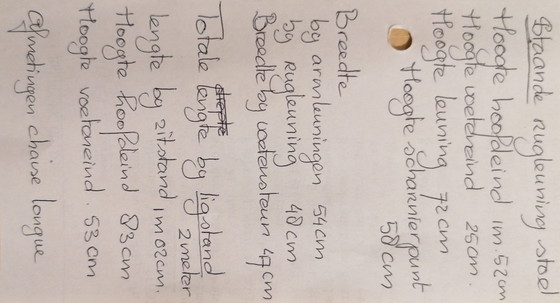 Staande rugleuning stoel
Hoogte hoofdeind 1m.52cm
Hoogte voeteneind 25cm.
Hoogte leuning 72cm
Hoogte scharnierpunt
58cm
Breedte
by armleuningen 54cm
by rugleuning 48cm
Breedte by voetensteun 47cm
Totale lengte by ligstand
2 meter
lengte by zitstand 1m02cm.
Hoogte hoofdeind 83cm
Hoogte voeteneind. 53cm
Afmetingen chaise longue